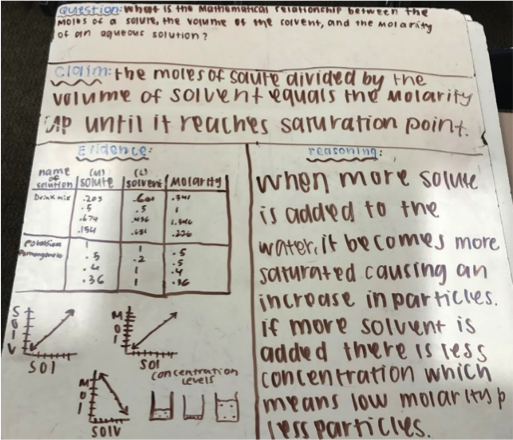 Question: What is the Mathematical relationship between the
moles of a solute, the volume of the solvent, and the molarity
of an aqueous solution?
Claim: the moles of solute divided by the
volume of solvent equals the Molarity
up until it reaches saturation point.
Evidence:
name of solution | solute | (L) solvent | Molarity
Drink mix | .203 | .341
.5 | .5 | 1
.674
.154 | .226
1 | 1 | .5
.5 | .2 | .5
1 | .4
.36 | 1 | .36
SOlV
SOl
MOl
SOl
MOl
SOlV
concentration
levels
reasoning:
when more solute
is added to the
water, it becomes more
saturated causing an
increase in particles.
if more solvent is
added there is less
concentration which
means low molarity p
less particles.